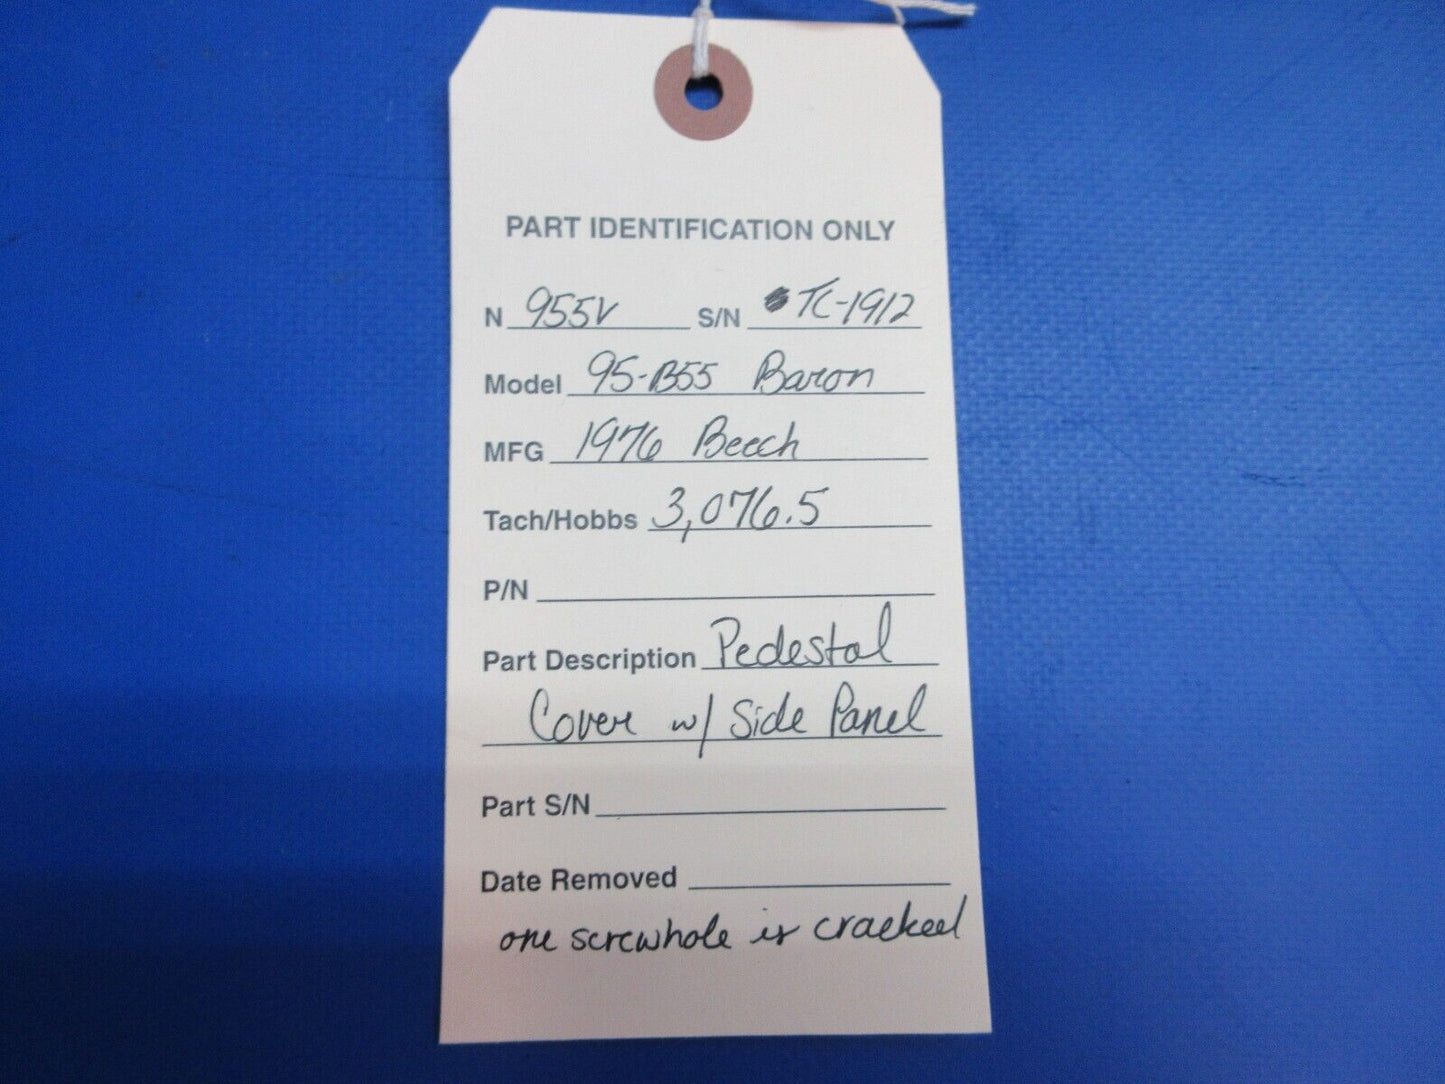 PART IDENTIFICATION ONLY
N 955V S/N TC-1912
Model 95-B55 Baron
MFG 1976 Beech
Tach/Hobbs 3,076.5
P/N
Part Description Pedestal
Cover w/ Side Panel
Part S/N
Date Removed
one screwhole is cracked